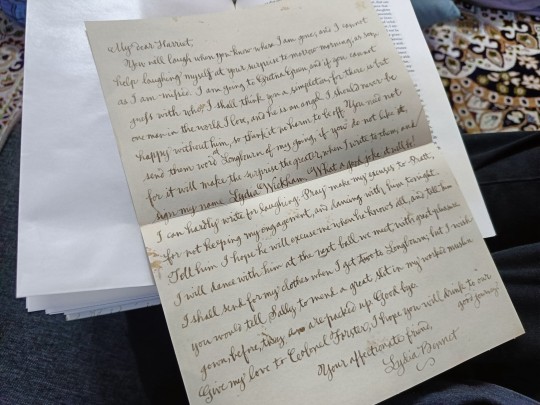 My dear Harriet,
You will laugh when you know where I am gone, and I cannot
help laughing myself at your surprise to-morrow morning, as soon
as I am missed. I am going to Gretna Green, and if you cannot
guess with who, I shall think you a simpleton, for there is but
one man in the world I love, and he is an angel. I should never be
happy without him, so think it no harm to be off. You need not
send them word at Longbourn of my going, if you do not like it,
for it will make the surprise the greater, when I write to them, and
sign my name Lydia Wickham. What a good joke it will be!
I can hardly write for laughing. Pray make my excuses to Pratt,
for not keeping my engagement, and dancing with him tonight.
Tell him I hope he will excuse me when he knows all, and tell him
I will dance with him at the next ball we meet with great pleasure.
I shall send for my clothes when I get to Longbourn; but I wish
you would tell Sally to mend a great slit in my worked muslin
gown before, they are packed up. Good bye.
Give my love to Colonel Forster, I hope you will drink to our
good journey.
Your affectionate friend,
Lydia Bennet